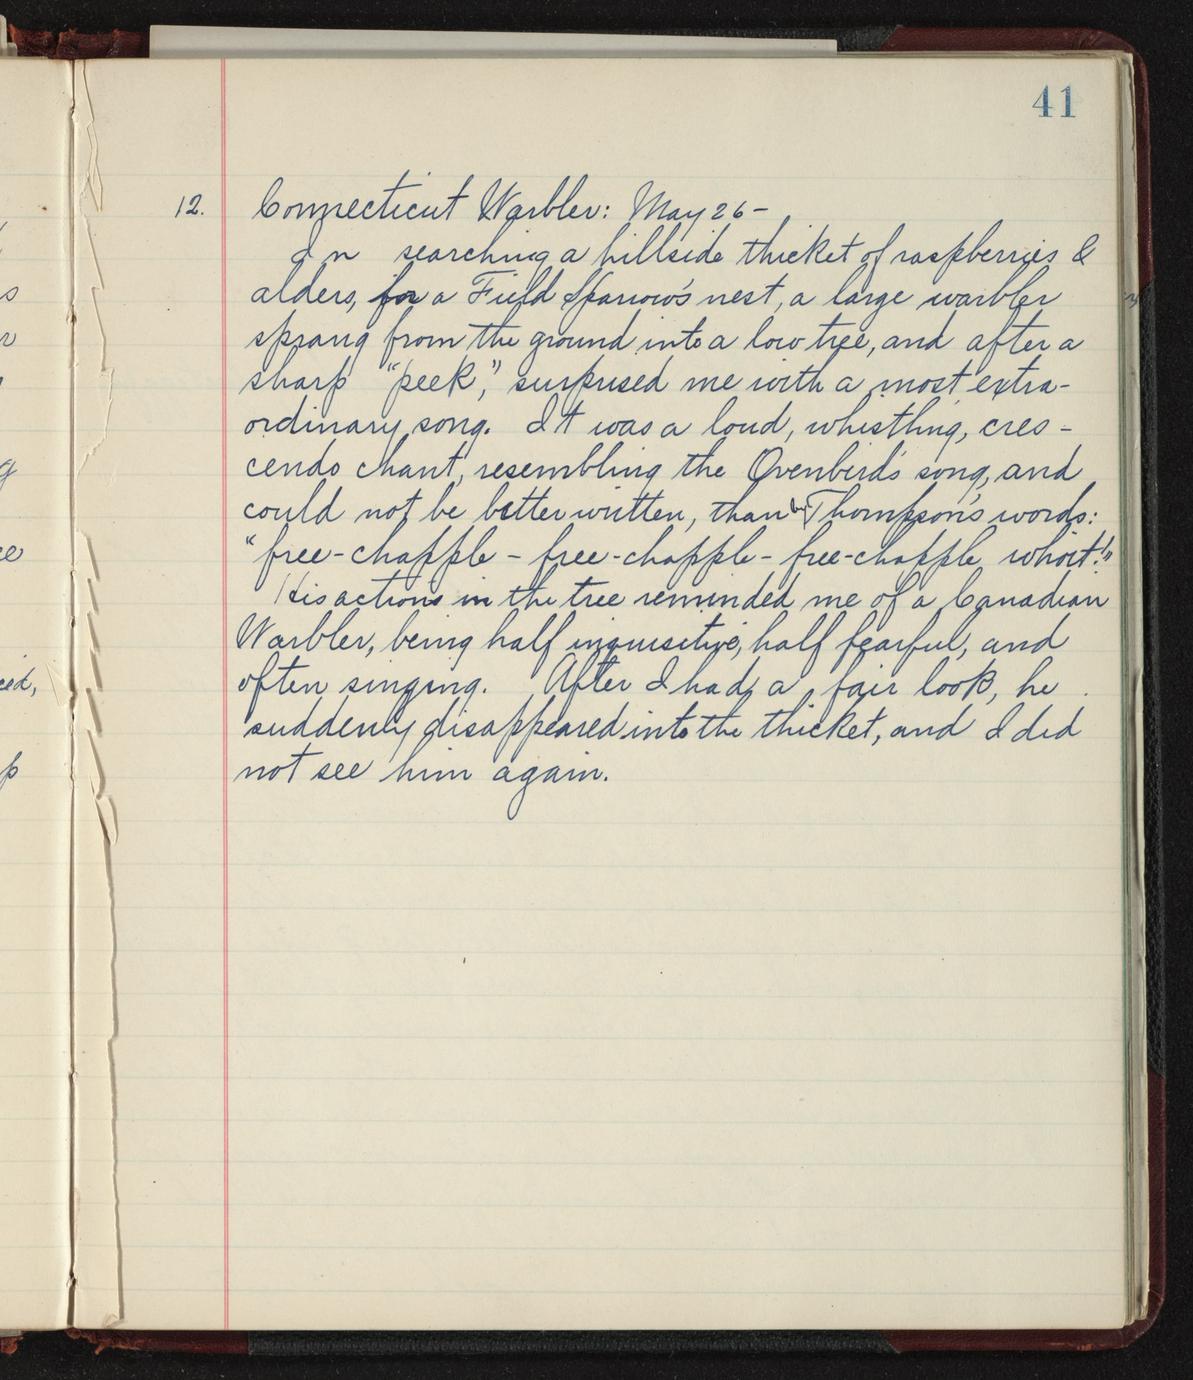 41
12. Connecticut Warbler: May 26-
In searching a hillside thicket of raspberries &
alders, for a Field Sparrow's nest, a large warbler
sprang from the ground into a low tree, and after a
sharp "peek", surprised me with a most extra-
ordinary song. It was a loud, whistling, cres-
cendo chant, resembling the Ovenbird's song, and
could not be better written, than by Thompson's words:
"free-chapple - free-chapple - free-chapple, whoit!"
His actions in the tree reminded me of a Canadian
Warbler, being half inquisitive, half fearful, and
often singing. After I had a fair look, he
suddenly disappeared into the thicket, and I did
not see him again.